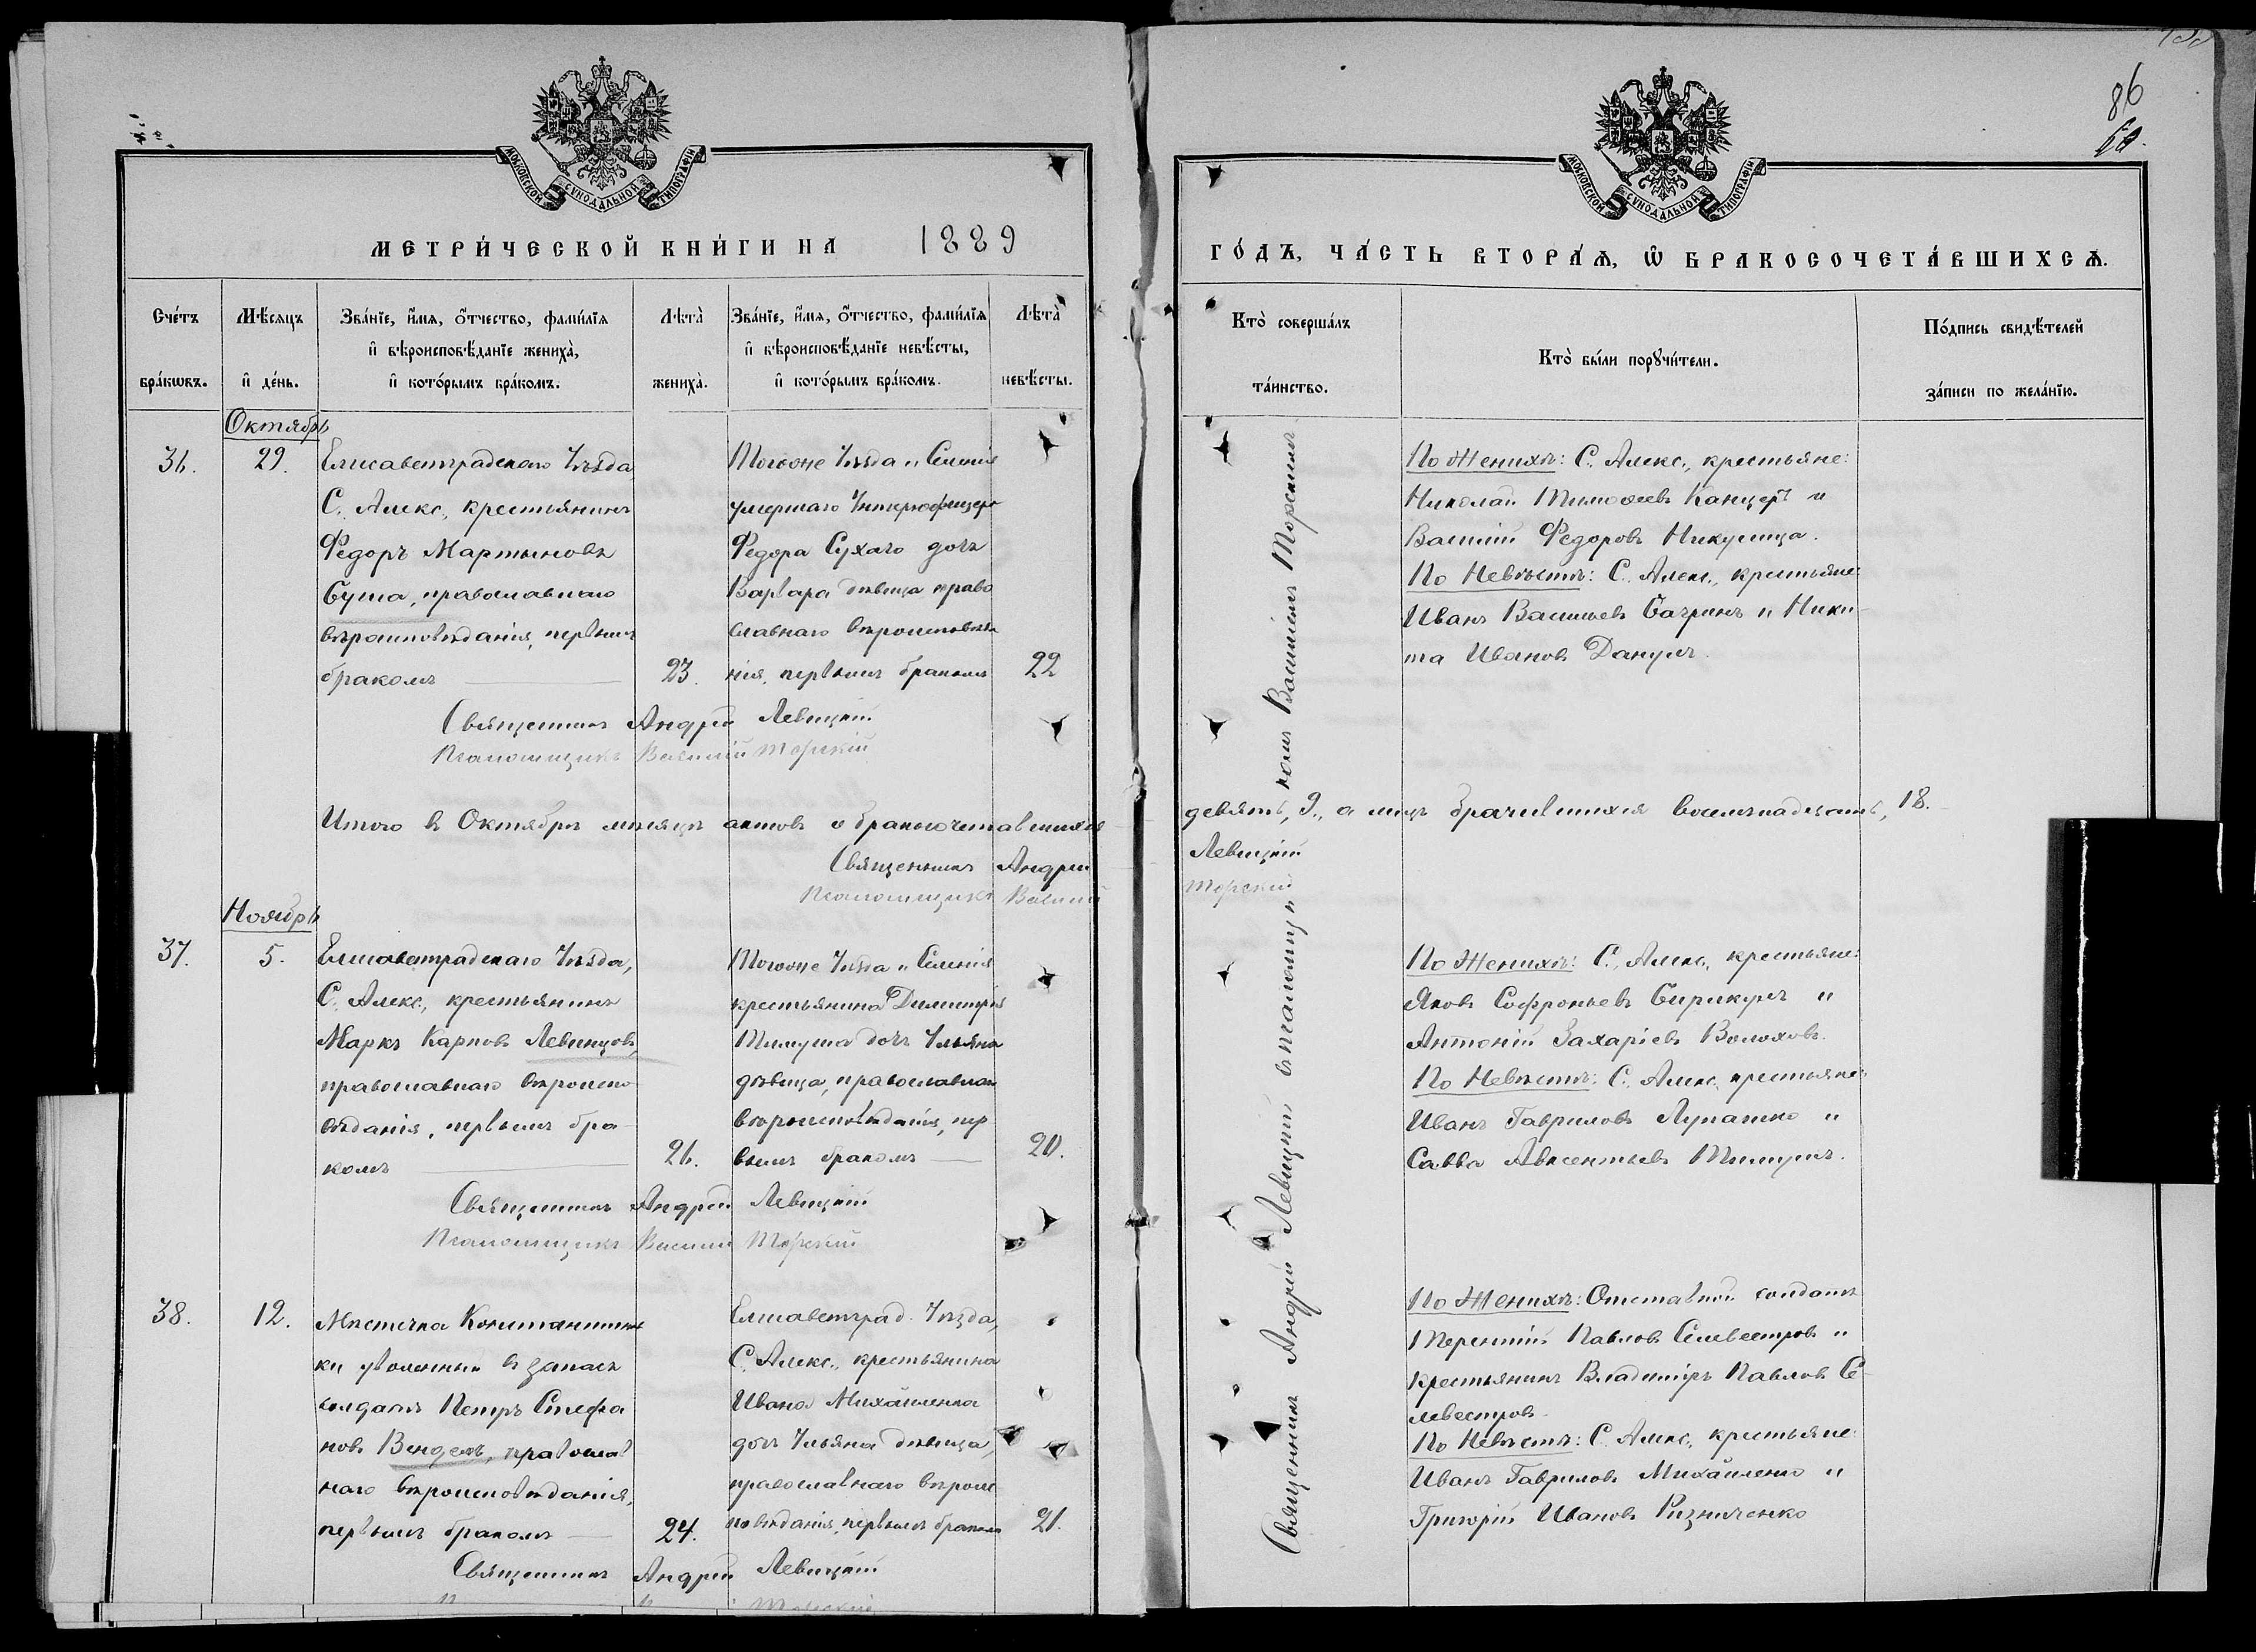 МОСКОВСКОЙ СУНОДАЛЬНОЙ ТИПОГРАФІИ
МЕТРИ́ЧЕСКОЙ КНИ́ГИ НА 1889
Сче́тъ бра́кѡвъ.
Мѣ́сяцъ и҆ де́нь.
Зва́нїе, и҆́мя, ѻ҆́тчество, фами́лїя
и҆ вѣроисповѣ́данїе жениха̀,
и҆ кото́рымъ бра́комъ.
Лѣта̀ жениха̀.
Зва́нїе, и҆́мя, ѻ҆́тчество, фами́лїя
и҆ вѣроисповѣ́данїе невѣ́сты,
и҆ кото́рымъ бра́комъ.
Лѣта̀ невѣ́сты.
Октябрь
36. 29.
Елисаветградскаго Уѣзда
С. Алекс., крестьянинъ
Федоръ Мартыновъ
Суша, православнаго
вѣроисповѣданія, первымъ
бракомъ 23.
Тогоже Уѣзда и Селенія
умершаго Унтерофицера
Федора Сухаго дочь
Варвара дѣвица право
славнаго вѣроисповѣда
нія, первымъ бракомъ 22
Священникъ Андрей Левицкій
Псаломщикъ Василій Торскій
Итого въ Октябрѣ мѣсяцѣ актовъ о бракосочетавшихся
Священникъ Андрей
Псаломщикъ Василій
Ноябрь
37. 5.
Елисаветградскаго Уѣзда,
С. Алекс., крестьянинъ
Маркъ Карповъ Левинцовъ,
православнаго вѣроиспо
вѣданія, первымъ бра-
комъ 21.
Тогоже Уѣзда и Селенія
крестьянина Димитрія
Тимуша дочь Ульяна
дѣвица, православнаго
вѣроисповѣданія, пер
вымъ бракомъ 20.
Священникъ Андрей Левицкій
Псаломщикъ Василій Торскій
38. 12.
Мѣстечка Константинов
ки уволенный въ запасъ
солдатъ Петръ Стефа
новъ Вендель, православ
наго вѣроисповѣданія,
первымъ бракомъ 24.
Елисаветград. Уѣзда,
С. Алекс., крестьянина
Ивана Михайленка
дочь Ульяна дѣвица,
православнаго вѣроис
повѣданія, первымъ бракомъ 21.
Священникъ Андрей Левицкій
86
МОСКОВСКОЙ СУНОДАЛЬНОЙ ТИПОГРАФІИ
ГО́ДЪ, ЧА́СТЬ ВТОРА́Ѧ, Ѿ БРАКОСОЧЕТА́ВШИХСѦ.
Кто̀ соверша́лъ та́инство.
Кто̀ бы́ли порꙋчи́тели.
По́дпись свидѣ́телей за́писи по жела́нїю.
Священникъ Андрей Левицкій съ псаломщикомъ Василіемъ Торскимъ
По Женихѣ: С. Алекс., крестьяне:
Николай Тимоѳеевъ Канцеръ и
Василій Федоровъ Никулица.
По Невѣстѣ: С. Алекс., крестьяне:
Иванъ Васильевъ Багринъ и Ники-
та Ивановъ Данулъ.
девять, 9., а лицъ брачившихся восемнадцать, 18.
Левицкій
Торскій
По Женихѣ: С. Алекс., крестьяне:
Яковъ Софроньевъ Бирикулъ и
Антоній Захаріевъ Волоховъ.
По Невѣстѣ: С. Алекс., крестьяне:
Иванъ Гавриловъ Лупашко и
Савва Авксентьевъ Тимушъ.
По Женихѣ: Отставной солдатъ
Терентій Павловъ Селевестровъ и
Крестьянинъ Владиміръ Павловъ Се-
левестровъ.
По Невѣстѣ: С. Алекс., крестьяне
Иванъ Гавриловъ Михайленко и
Григорій Ивановъ Ризниченко